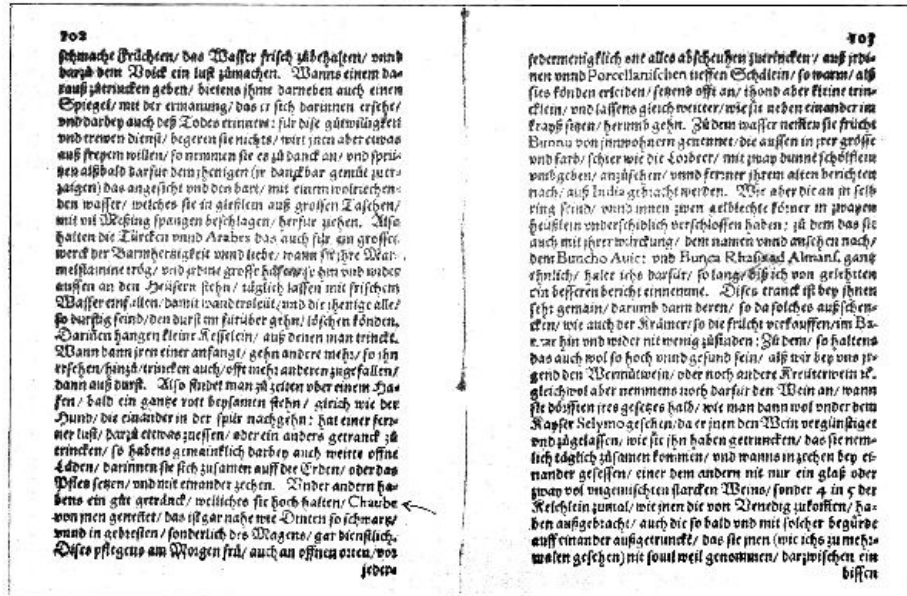 102
schmache Früchten/ das Wasser frisch zůbehalten/ vnnd
darzů dem Volck ein lust zůmachen. Wanns einem da-
rauß zůtrincken geben/ bietens jhme darneben auch einen
Spiegel/ mit der ermanung/ das er sich darinnen ersehe/
vnd darbey auch deß Todes erinnere: für dise gůtwilligkeit
vnd trewen dienst/ begeren sie nichts/ wirt jnen aber etwas
auß freyem willen/ so nemmen sie es zů danck an/ vnd sprü-
tzen alßbald darfür dem jhenigen (jr danckbar gemüt zuer-
zaigen) das angesicht vnd den bart/ mit einem wolriechen-
den wasser/ welches sie in gleßlein auß grossen Taschen/
mit vil Meßing spangen beschlagen/ herfür ziehen. Also
halten die Türcken vnnd Arabes das auch für ein grosses
werck der Barmhertzigkeit vnnd liebe/ wann sie jhre Mar-
melstainine trög/ vnd jrdine grosse häfen/ so hin vnd wider
aussen an den Heüsern stehn/ täglich lassen mit frischem
Wasser einfüllen/ damit wandersleüt/ vnd die jhenige alle/
so durstig seind/ den durst im fürüber gehn/ löschen könden.
Darinnen hangen kleine Kesselein/ auß denen man trinckt.
Wann dann jren einer anfangt/ gehn andere mehr/ so jhn
ersehen/ hinzů/ trincken auch/ offt mehr anderen zůgefallen/
dann auß durst. Also findet man zů zeiten ober einem Ha-
fen/ bald ein gantze rott beysamen stehn/ gleich wie der
Hund/ die einander in der spůr nachgehn: hat einer fer-
ner lust/ darzů ettwas zuessen/ oder ein anders getranck zů
trincken/ so habens gemainklich darbey auch weitte offne
Läden/ darinnen sie sich zusamen auff die Erden/ oder das
Pflest setzen/ vnd mit einander zechen. Vnder andern ha-
bens ein gůt getränck/ welliches sie hoch halten/ Chaube
von jnen genennet/ das ist gar nahe wie Dinten so schwartz/
vnnd in gebresten/ sonderlich des Magens/ gar dienstlich.
Dises pflegens am Morgen frü/ auch an offnen orten/ vor
jeder-
103
jedermenigklich one alles abscheuhen zutrincken/ auß jrdi-
nen vnnd Porcellanischen tieffen Schälein/ so warm/ alß
sies könden erleiden/ setzend offt an/ thond aber kleine trin-
cklein/ vnd lassens gleich weitter/ wie sie neben einander im
krayß sitzen/ herumb gehn. Zů dem wasser nemmen sie frücht
Bunnu von jnnwohnern genennet/ die aussen in jrer grösse
vnd farb/ schier wie die Lorbeer/ mit zway dünnen schölflein
vmbgeben/ anzůsehen/ vnnd ferner jhrem alten berichten
nach/ auß India gebracht werden. Wie aber die an jn selb
ring seind/ vnnd innen zwen gelblechte körner in zwayen
heüßlein vnderschidlich verschlossen haben: zů dem das sie
auch mit jhrer würckung/ dem namen vnnd ansehen nach/
dem Buncho Auic: vnd Bunca Rhasis ad Almans. gantz
ähnlich/ halte ichs darfür/ so lang/ biß ich von gelehrten
ein besseren bericht einnemme. Dises tranck ist bey jhnen
sehr gemain/ darumb dann deren/ so da solches außschen-
cken/ wie auch der Krämer/ so die frücht verkauffen/ im Ba-
tzar hin vnd wider nit wenig zůfinden: Zů dem/ so haltens
das auch wol so hoch vnnd gesund sein/ alß wir bey vns jr-
gend den Wermůtwein/ oder noch andere Kreüterwein ꝛc.
gleichwol aber nemmens noch darfür den Wein an/ wann
sie dörfften jres gesetzes halb/ wie man dann wol vnder dem
Kayser Selymo gesehen/ da er jnen den Wein vergünstiget
vnd zůgelassen/ wie sie jhn haben getruncken/ das sie nem-
lich täglich zůsamen kommen/ vnd wanns in zechen bey ei-
nander gesessen/ einer dem andern nit nur ein glaß oder
zway vol vngemischten starcken Weins/ sonder 4 in 5 der
Kelchlein zumal/ wie jnen die von Venedig zukommen/ ha-
ben außgebracht/ auch die so bald vnd mit solcher begürde
auff einander außgetruncken/ das sie jnen (wie ichs zu mehr-
malen gesehen) nit souil weil genommen/ darzwischen ein
bissen